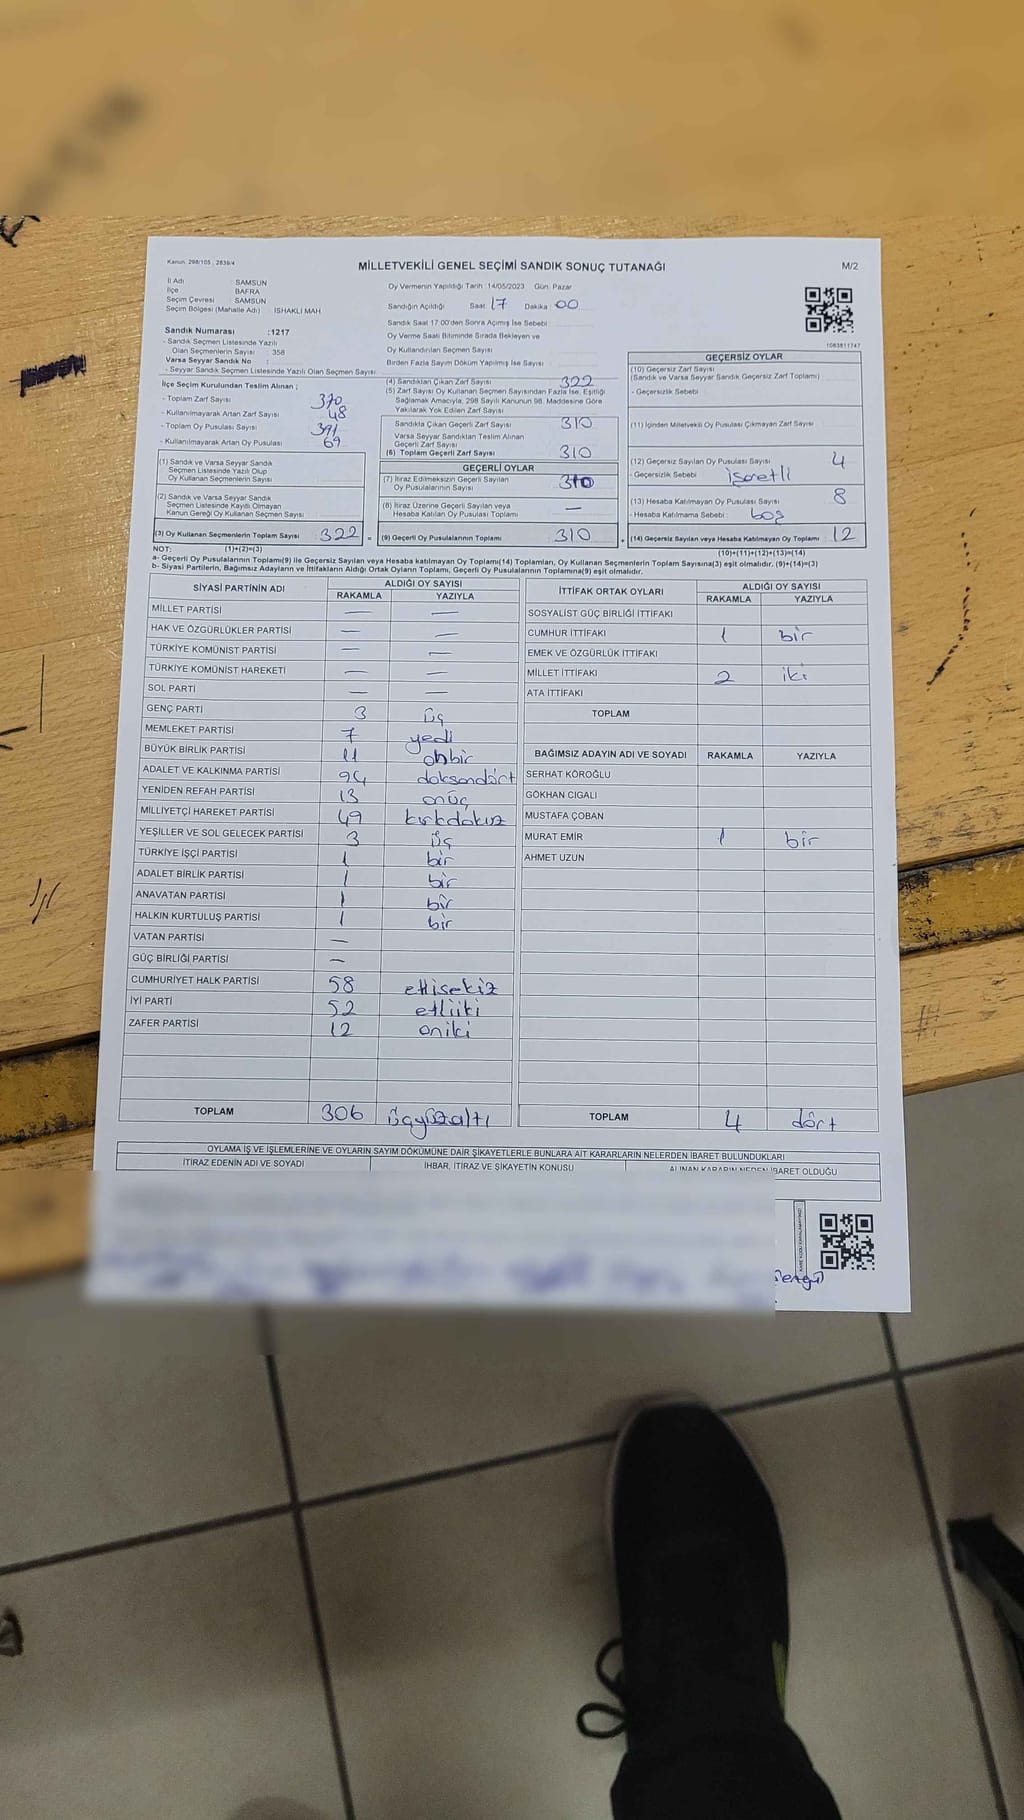 Kanun: 298/105 , 2839/4
MİLLETVEKİLİ GENEL SEÇİMİ SANDIK SONUÇ TUTANAĞI
M/2
İl Adı : SAMSUN
İlçe : BAFRA
Seçim Çevresi : SAMSUN
Seçim Bölgesi (Mahalle Adı) : İSHAKLI MAH.
Oy Vermenin Yapıldığı Tarih : 14/05/2023 Gün: Pazar
Sandığın Açıldığı Saat 17 Dakika 00
Sandık Saat 17.00'den Sonra Açımış İse Sebebi :
Oy Verme Saati Bitiminde Sırada Bekleyen ve
Oy Kullandırılan Seçmen Sayısı
Birden Fazla Sayım Döküm Yapılmış İse Sayısı :
1083811747
Sandık Numarası :1217
- Sandık Seçmen Listesinde Yazılı
Olan Seçmenlerin Sayısı : 358
Varsa Seyyar Sandık No :
- Seyyar Sandık Seçmen Listesinde Yazılı Olan Seçmen Sayısı:
İlçe Seçim Kurulundan Teslim Alınan ;
- Toplam Zarf Sayısı 370
- Kullanılmayarak Artan Zarf Sayısı 48
- Toplam Oy Pusulası Sayısı 391
- Kullanılmayarak Artan Oy Pusulası 69
(1) Sandık ve Varsa Seyyar Sandık
Seçmen Listesinde Yazılı Olup
Oy Kullanan Seçmenlerin Sayısı
(2) Sandık ve Varsa Seyyar Sandık
Seçmen Listesinde Kayıtlı Olmayan
Kanun Gereği Oy Kullanan Seçmen Sayısı
(3) Oy Kullanan Seçmenlerin Toplam Sayısı 322
(1)+(2)=(3)
(4) Sandıktan Çıkan Zarf Sayısı 322
(5) Zarf Sayısı Oy Kullanan Seçmen Sayısından Fazla İse, Eşitliği
Sağlamak Amacıyla, 298 Sayılı Kanunun 98. Maddesine Göre
Yakılarak Yok Edilen Zarf Sayısı
Sandıkta Çıkan Geçerli Zarf Sayısı 310
Varsa Seyyar Sandıktan Teslim Alınan
Geçerli Zarf Sayısı
(6) Toplam Geçerli Zarf Sayısı 310
GEÇERLİ OYLAR
(7) İtiraz Edilmeksizin Geçerli Sayılan
Oy Pusulalarının Sayısı 310
(8) İtiraz Üzerine Geçerli Sayılan veya
Hesaba Katılan Oy Pusulası Toplamı —
= (9) Geçerli Oy Pusulalarının Toplamı 310
GEÇERSİZ OYLAR
(10) Geçersiz Zarf Sayısı
(Sandık ve Varsa Seyyar Sandık Geçersiz Zarf Toplamı)
- Geçersizlik Sebebi
(11) İçinden Milletvekili Oy Pusulası Çıkmayan Zarf Sayısı
(12) Geçersiz Sayılan Oy Pusulası Sayısı 4
- Geçersizlik Sebebi işaretli
(13) Hesaba Katılmayan Oy Pusulası Sayısı 8
- Hesaba Katılmama Sebebi : boş
+ (14) Geçersiz Sayılan veya Hesaba Katılmayan Oy Toplamı 12
(10)+(11)+(12)+(13)=(14)
NOT:
a- Geçerli Oy Pusulalarının Toplamı(9) ile Geçersiz Sayılan veya Hesaba katılmayan Oy Toplamı(14) Toplamları, Oy Kullanan Seçmenlerin Toplam Sayısına(3) eşit olmalıdır. (9)+(14)=(3)
b- Siyasi Partilerin, Bağımsız Adayların ve İttifakların Aldığı Ortak Oyların Toplamı, Geçerli Oy Pusulalarının Toplamına(9) eşit olmalıdır.
SİYASİ PARTİNİN ADI ALDIĞI OY SAYISI
RAKAMLA YAZIYLA
MİLLET PARTİSİ — —
HAK VE ÖZGÜRLÜKLER PARTİSİ — —
TÜRKİYE KOMÜNİST PARTİSİ — —
TÜRKİYE KOMÜNİST HAREKETİ — —
SOL PARTİ — —
GENÇ PARTİ 3 üç
MEMLEKET PARTİSİ 7 yedi
BÜYÜK BİRLİK PARTİSİ 11 onbir
ADALET VE KALKINMA PARTİSİ 94 doksandört
YENİDEN REFAH PARTİSİ 13 onüç
MİLLİYETÇİ HAREKET PARTİSİ 49 kırkdokuz
YEŞİLLER VE SOL GELECEK PARTİSİ 3 üç
TÜRKİYE İŞÇİ PARTİSİ 1 bir
ADALET BİRLİK PARTİSİ 1 bir
ANAVATAN PARTİSİ 1 bir
HALKIN KURTULUŞ PARTİSİ 1 bir
VATAN PARTİSİ —
GÜÇ BİRLİĞİ PARTİSİ —
CUMHURİYET HALK PARTİSİ 58 ellisekiz
İYİ PARTİ 52 elliiki
ZAFER PARTİSİ 12 oniki
TOPLAM 306 üçyüzaltı
İTTİFAK ORTAK OYLARI ALDIĞI OY SAYISI
RAKAMLA YAZIYLA
SOSYALİST GÜÇ BİRLİĞİ İTTİFAKI
CUMHUR İTTİFAKI 1 bir
EMEK VE ÖZGÜRLÜK İTTİFAKI
MİLLET İTTİFAKI 2 iki
ATA İTTİFAKI
TOPLAM
BAĞIMSIZ ADAYIN ADI VE SOYADI RAKAMLA YAZIYLA
SERHAT KÖROĞLU
GÖKHAN CIGALI
MUSTAFA ÇOBAN
MURAT EMİR 1 bir
AHMET UZUN
TOPLAM 4 dört
OYLAMA İŞ VE İŞLEMLERİNE VE OYLARIN SAYIM DÖKÜMÜNE DAİR ŞİKAYETLERLE BUNLARA AİT KARARLARIN NELERDEN İBARET BULUNDUKLARI
İTİRAZ EDENİN ADI VE SOYADI İHBAR, İTİRAZ VE ŞİKAYETİN KONUSU ALINAN KARARIN NEDEN İBARET OLDUĞU